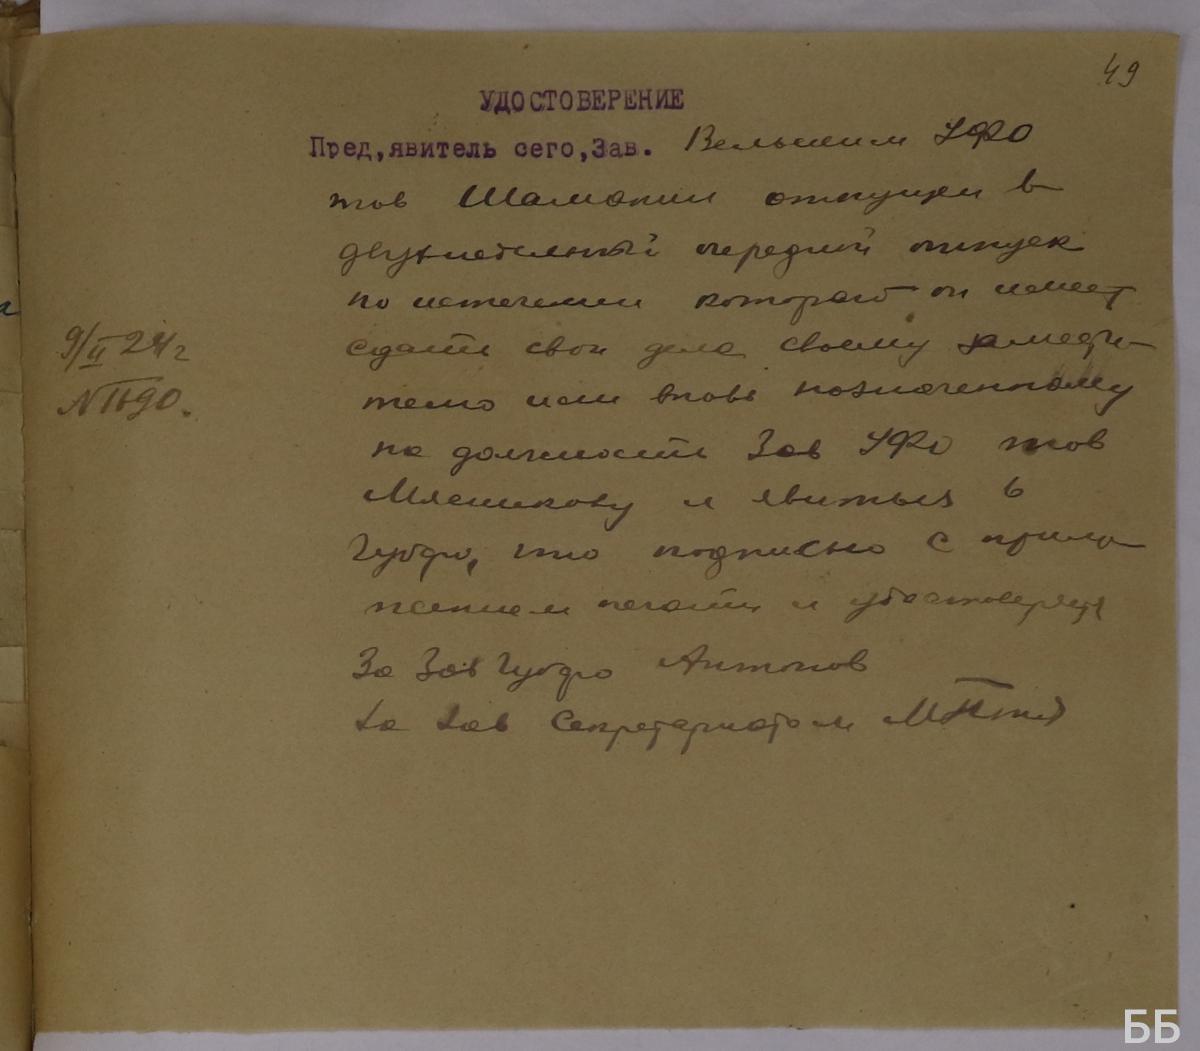 49
УДОСТОВЕРЕНИЕ
Пред,явитель сего,Зав. Вельским УФО
тов Шаманин отпущен в
двухнедельный очередной отпуск
по истечении которого он имеет
сдать свои дела своему замести-
телю или вновь назначенному
на должность Зав УФО тов
Мясникову и явиться в
Губфо, что подписью с прило
жением печати и удостоверяется
За Зав Губфо Антонов
За Зав Секретариатом
9/II 24 г
ББ